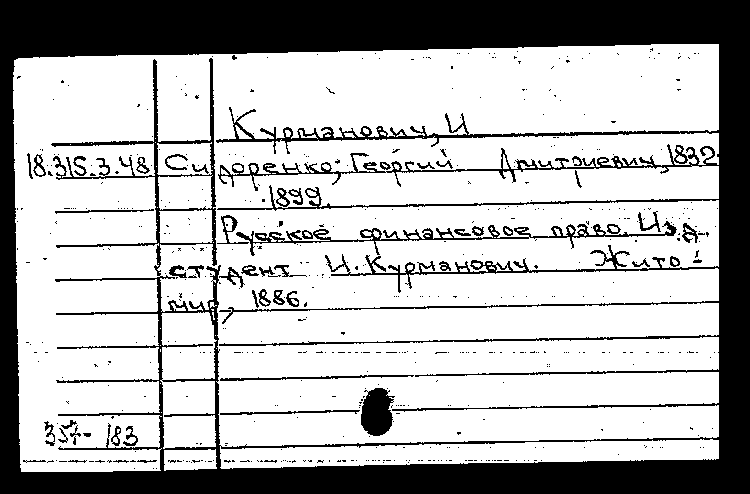 Курманович, И
18.315.3.48 Сидоренко, Георгий Дмитриевич, 1832-
1899.
Русское финансовое право. Изд.
студент И. Курманович. Жито-
мир, 1886.
357-183